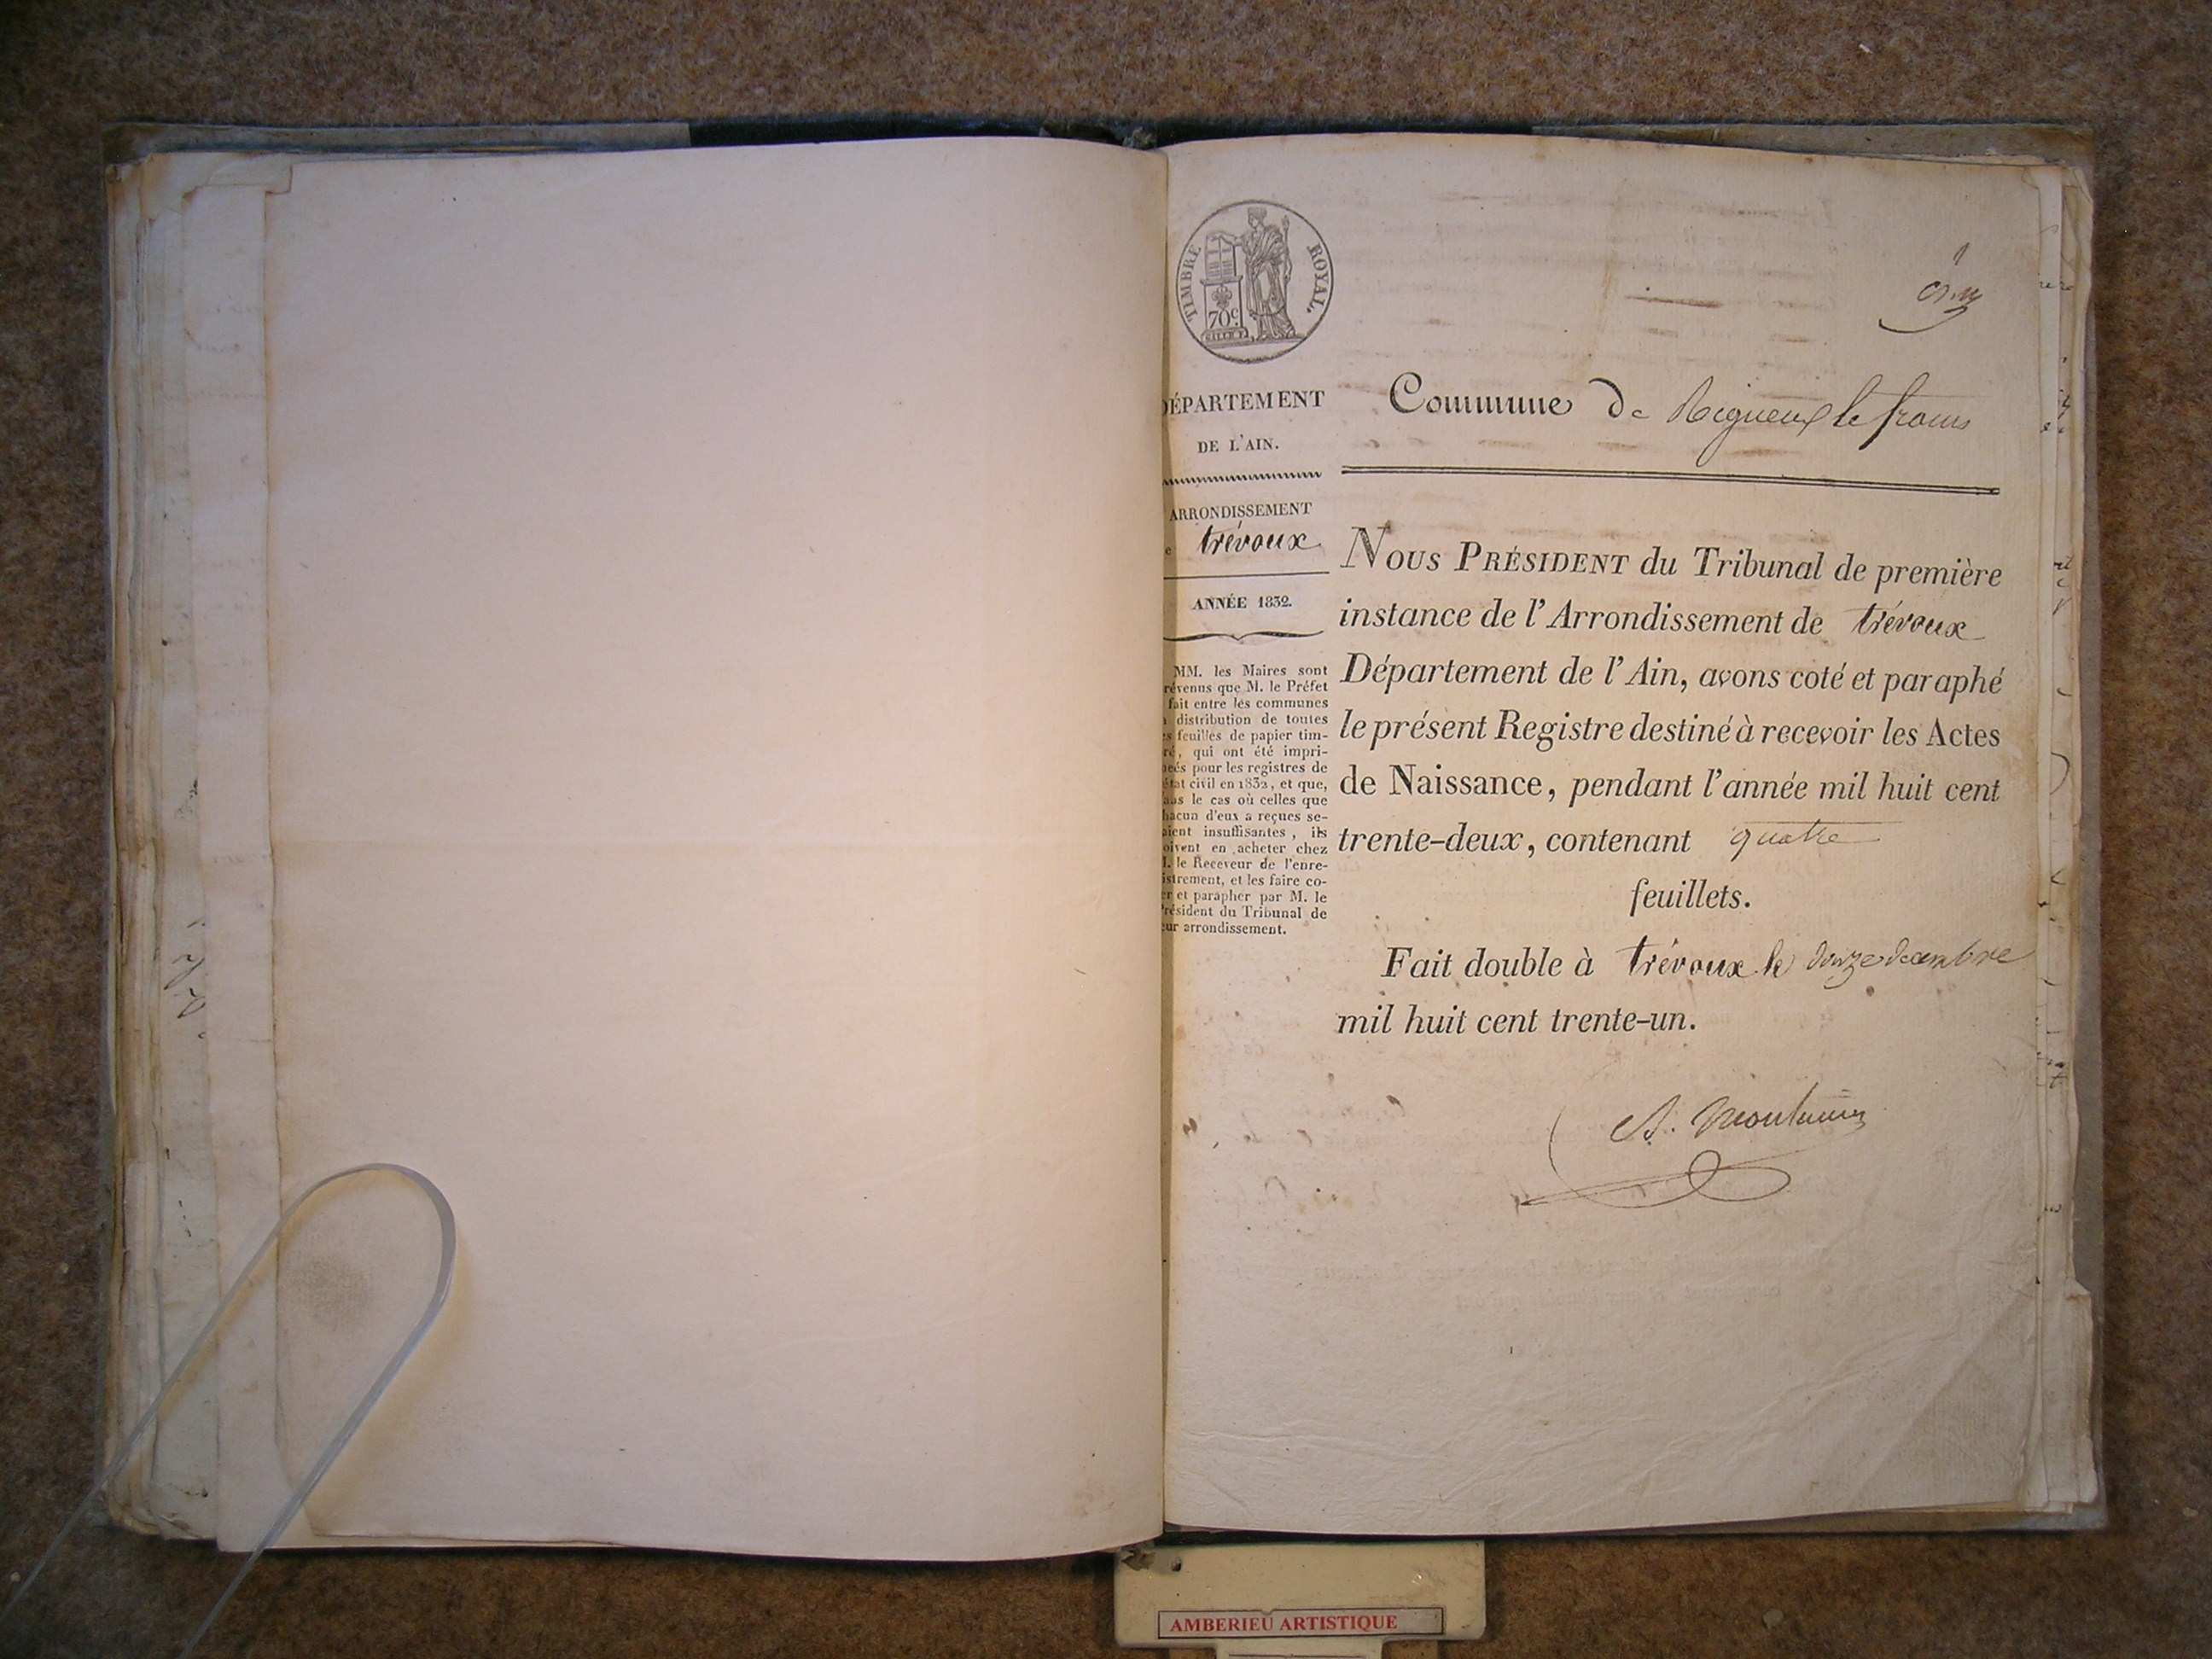 TIMBRE ROYAL.
70 C
DÉPARTEMENT
DE L'AIN.
ARRONDISSEMENT
trévoux
ANNÉE 1832.
MM. les Maires sont
révenus que M. le Préfet
fait entre les communes
distribution de toutes
feuilles de papier tim-
ré, qui ont été impri-
ées pour les registres de
état civil en 1832, et que,
le cas où celles que
hacun d'eux a reçues se-
aient insuffisantes, ils
oivent en acheter chez
le Receveur de l'enre-
istrement, et les faire co-
er et parapher par M. le
résident du Tribunal de
ur arrondissement.
Commune de Rigneux le franc
NOUS PRÉSIDENT du Tribunal de première
instance de l'Arrondissement de trévoux
Département de l'Ain, avons coté et paraphé
le présent Registre destiné à recevoir les Actes
de Naissance, pendant l'année mil huit cent
trente-deux, contenant quatre
feuillets.
Fait double à trévoux le douze decembre
mil huit cent trente-un.
AMBERIEU ARTISTIQUE